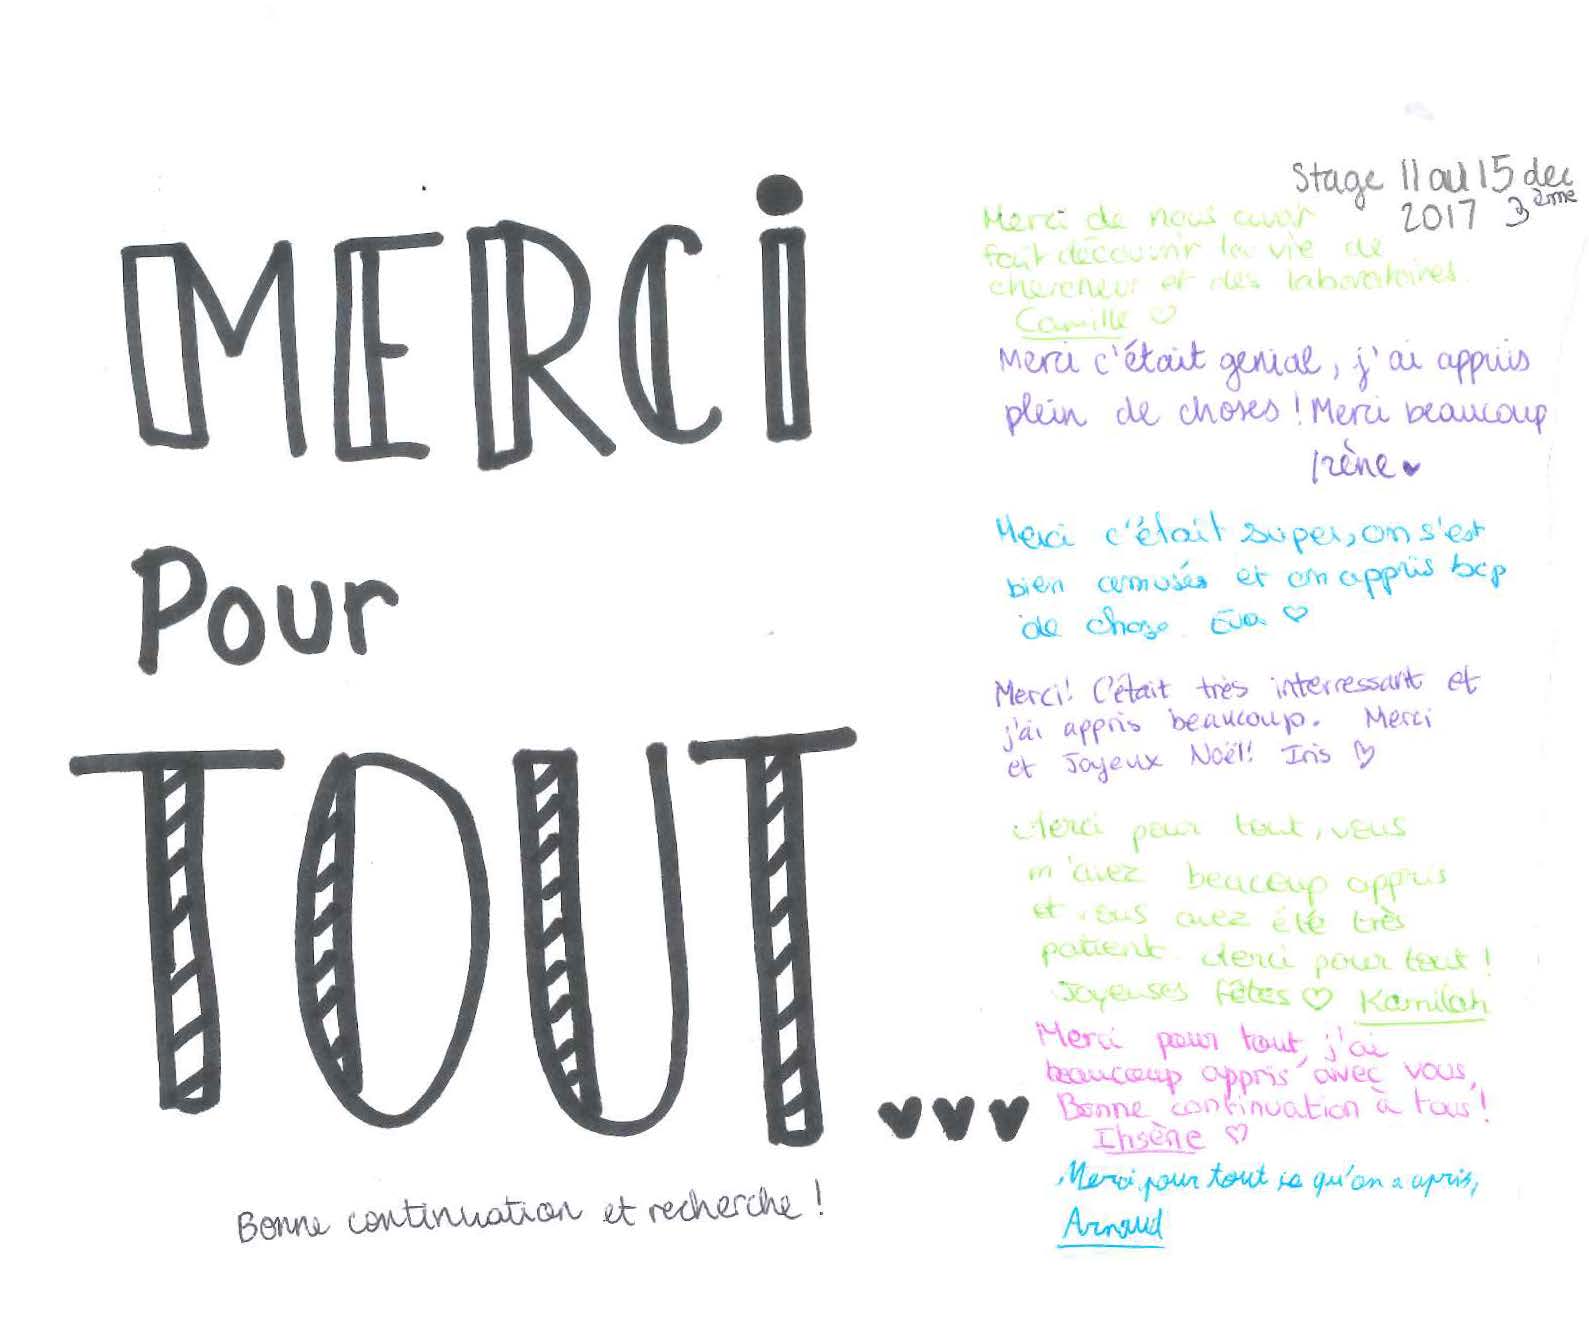 MERCi
Pour
TOUT...
Bonne continuation et recherche !
Stage 11 au 15 dec
2017 3ème
Merci de nous avoir
fait découvrir la vie de
chercheur et des laboratoires.
Camille ♡
Merci c'était genial, j'ai appris
plein de choses ! Merci beaucoup
Irène ♥
Merci c'était super, on s'est
bien amusés et on appris bcp
de chose. Eva ♡
Merci! C'était très interressant et
j'ai appris beaucoup. Merci
et Joyeux Noël! Iris ♡
Merci pour tout, vous
m'avez beaucoup appris
et vous avez été très
patient. Merci pour tout !
Joyeuses Fêtes ♡ Kamilah
Merci pour tout, j'ai
beaucoup appris avec vous,
Bonne continuation à tous !
Ihsène ♡
Merci pour tout ce qu'on a apris,
Arnaud